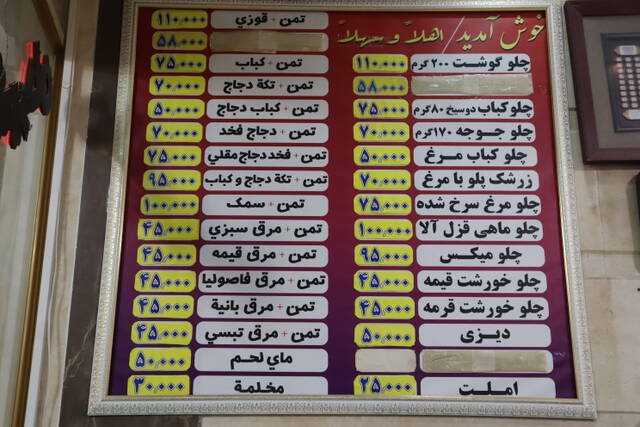 خوش آمدید / اهلاً و سهلاً
چلو گوشت ۲۰۰ گرم ۱۱۰,۰۰۰
۵۸,۰۰۰
چلو کباب دو سیخ ۸۰ گرم ۷۵,۰۰۰
چلو جوجه ۱۷۰ گرم ۷۰,۰۰۰
چلو کباب مرغ ۵۰,۰۰۰
زرشک پلو با مرغ ۷۰,۰۰۰
چلو مرغ سرخ شده ۷۵,۰۰۰
چلو ماهی قزل آلا ۱۰۰,۰۰۰
چلو میکس ۹۵,۰۰۰
چلو خورشت قیمه ۴۵,۰۰۰
چلو خورشت قرمه ۴۵,۰۰۰
دیزی ۵۰,۰۰۰
املت ۲۵,۰۰۰
تمن + قوزي ۱۱۰,۰۰۰
۵۸,۰۰۰
تمن + کباب ۷۵,۰۰۰
تمن + تکة دجاج ۷۰,۰۰۰
تمن + کباب دجاج ۵۰,۰۰۰
تمن + دجاج فخد ۷۰,۰۰۰
تمن + فخد دجاج مقلي ۷۵,۰۰۰
تمن + تکة دجاج و کباب ۹۵,۰۰۰
تمن + سمک ۱۰۰,۰۰۰
تمن + مرق سبزي ۴۵,۰۰۰
تمن + مرق قیمه ۴۵,۰۰۰
تمن + مرق فاصولیا ۴۵,۰۰۰
تمن + مرق بانیة ۴۵,۰۰۰
تمن + مرق تبسي ۴۵,۰۰۰
ماي لحم ۵۰,۰۰۰
مخلمة ۳۰,۰۰۰